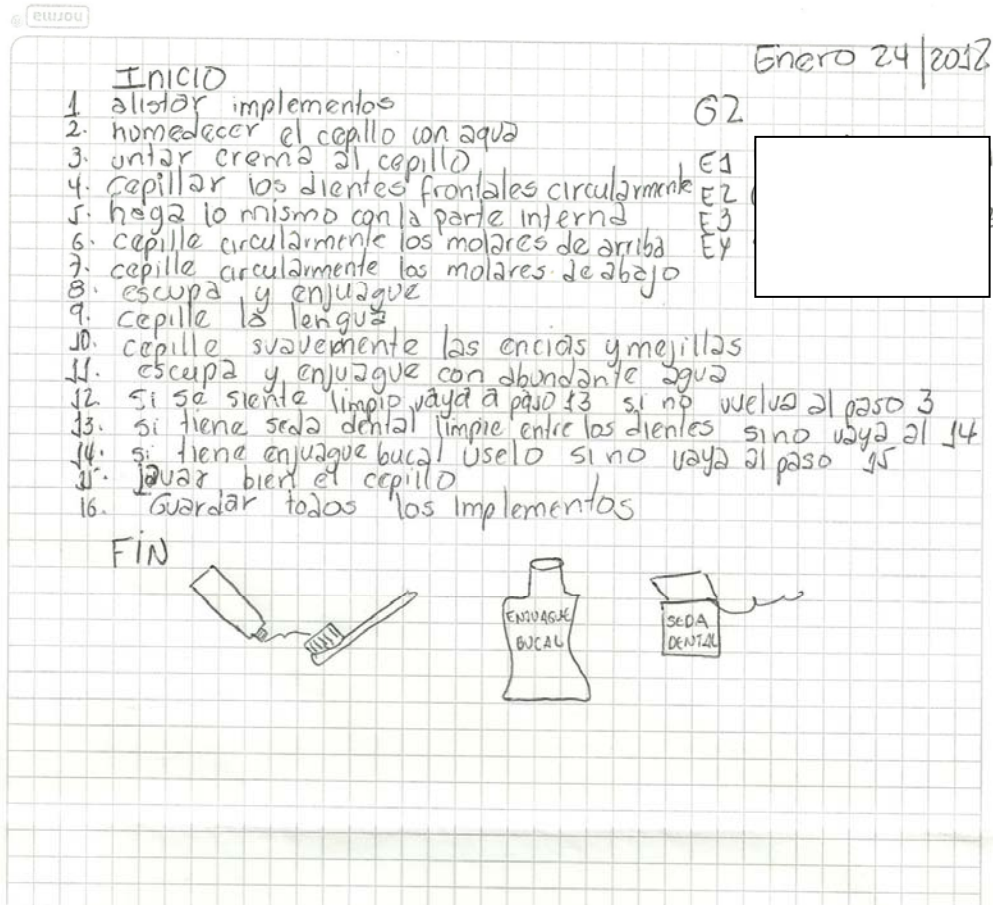 norma
Enero 24/2012
INICIO
G2
1 alistar implementos
2. humedecer el cepillo con agua
3. untar crema al cepillo
E1
4. cepillar los dientes frontales circularmente
E2
5. haga lo mismo con la parte interna
E3
6. cepille circularmente los molares de arriba
E4
7. cepille circularmente los molares de abajo
8. escupa y enjuague
9. cepille la lengua
10. cepille suavemente las encias y mejillas
11. escupa y enjuague con abundante agua
12. si se siente limpio vaya a paso 13 si no vuelva al paso 3
13. si tiene seda dental limpie entre los dientes sino vaya al 14
14. si tiene enjuague bucal uselo si no vaya al paso 15
15. lavar bien el cepillo
16. Guardar todos los implementos
FIN
ENJUAGUE
BUCAL
SEDA
DENTAL